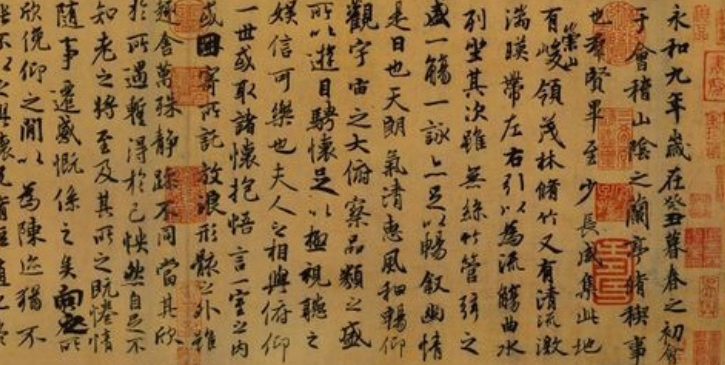 永和九年歲在癸丑暮春之初會
于會稽山陰之蘭亭脩稧事
也羣賢畢至少長咸集此地
有崇山峻領茂林脩竹又有清流激
湍暎帶左右引以為流觴曲水
列坐其次雖無絲竹管弦之
盛一觴一詠亦足以暢叙幽情
是日也天朗氣清惠風和暢仰
觀宇宙之大俯察品類之盛
所以遊目騁懷足以極視聽之
娛信可樂也夫人之相與俯仰
一世或取諸懷抱悟言一室之內
或因寄所託放浪形骸之外雖
趣舍萬殊靜躁不同當其欣
於所遇暫得於己怏然自足不
知老之將至及其所之既惓情
隨事遷感慨係之矣向之所
欣俛仰之閒以為陳迹猶不